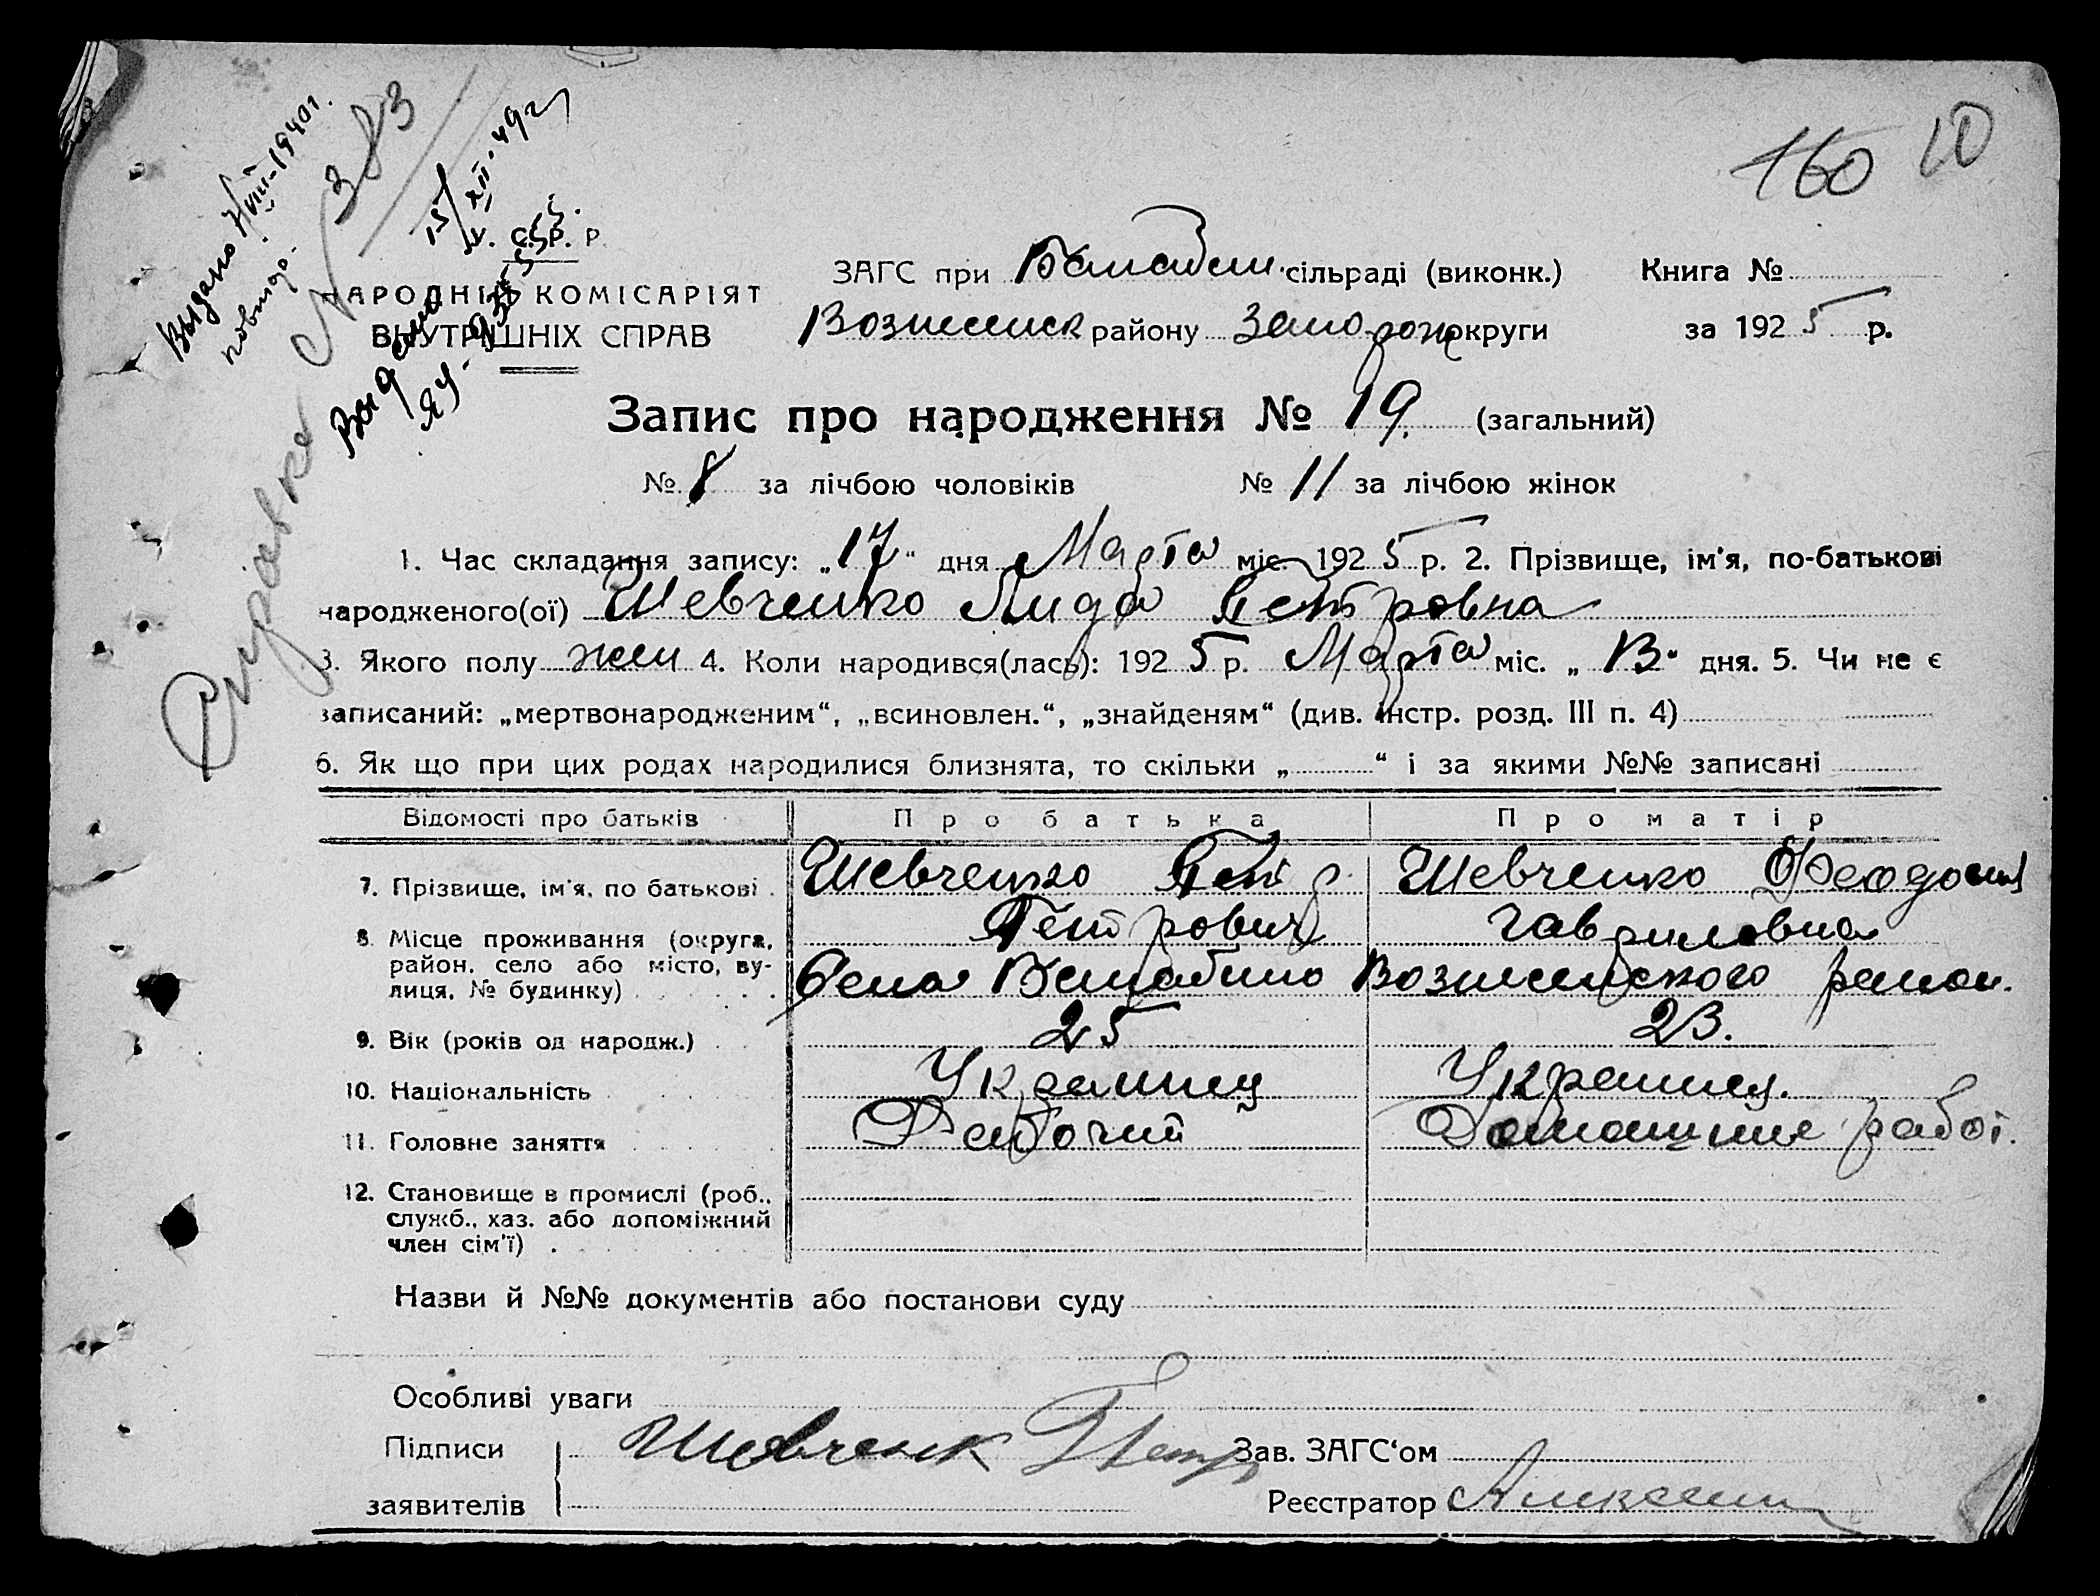 160 10
Выдано 7/VIII-1940 г.
повидо-
Справка № 383
15/XII-49 г.
Выдано
ЯУ-
У. С. Р. Р.
НАРОДНІЙ КОМІСАРІЯТ
ВНУТРІШНІХ СПРАВ
ЗАГС при Балабин. сільраді (виконк.) Книга №
Вознесенск району Запорож округи за 1925 р.
Запис про народження № 19. (загальний)
№ 8 за лічбою чоловіків № 11 за лічбою жінок
1. Час складання запису: „17“ дня Марта міс. 1925 р. 2. Прізвище, ім'я, по-батькові
народженого(ої) Шевченко Лида Петровна
3. Якого полу жен 4. Коли народився(лась): 1925 р. Марта міс. „13“ дня. 5. Чи не є
записаний: „мертвонародженим“, „всиновлен.“, „знайденям“ (див. інстр. розд. III п. 4)
6. Як що при цих родах народилися близнята, то скільки „ “ і за якими №№ записані
Відомості про батьків Про батька Про матір
7. Прізвище, ім'я, по батькові Шевченко Петр Петрович Шевченко Феодосия Гавриловна
8. Місце проживання (округа,
район, село або місто, ву-
лиця, № будинку) Село Балабино Вознесенского район.
9. Вік (років од народж.) 25 23.
10. Національність Украинец Украинец.
11. Головне заняття Рабочий Домашние работ.
12. Становище в промислі (роб.,
служб., хаз. або допоміжний
член сім'ї)
Назви й №№ документів або постанови суду
Особливі уваги
Підписи Шевченк Петр Зав. ЗАГС'ом
заявителів Реєстратор